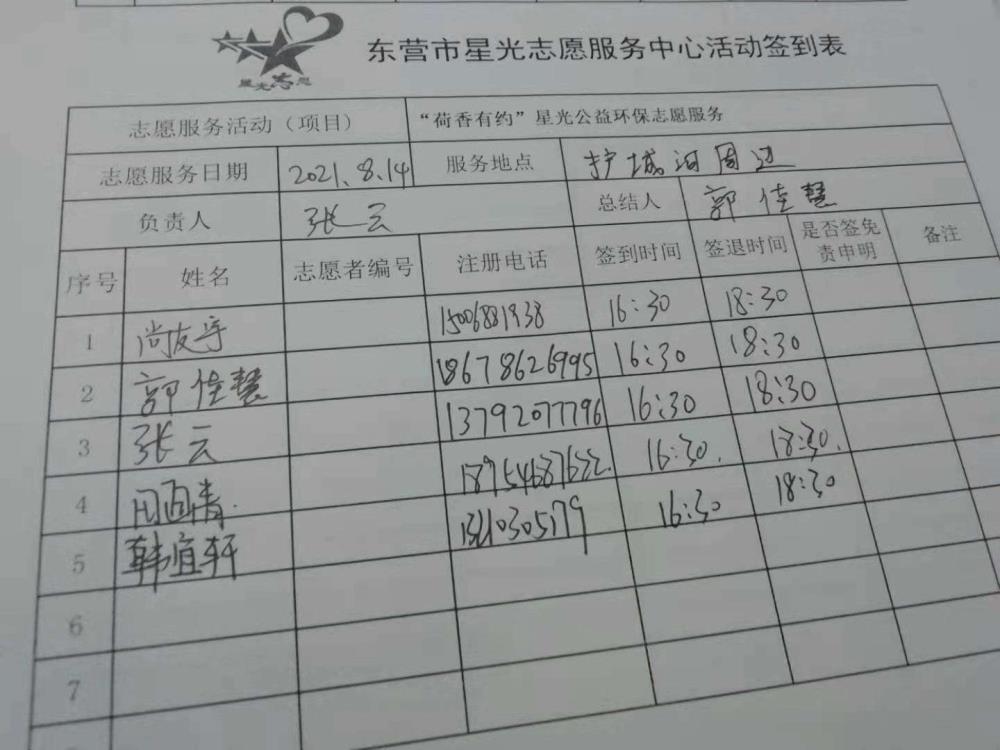 星光志愿
东营市星光志愿服务中心活动签到表
志愿服务活动（项目） “荷香有约”星光公益环保志愿服务
志愿服务日期 2021.8.14 服务地点 护城河周边
负责人 张云 总结人 郭佳慧
序号 姓名 志愿者编号 注册电话 签到时间 签退时间 是否签免责申明 备注
1 尚友 16:30 18:30
2 郭佳慧 18678626995 16:30 18:30
3 张云 13792077796 16:30 18:30
4 18754687632 16:30. 18:30.
5 韩直轩 16:30 18:30
6
7